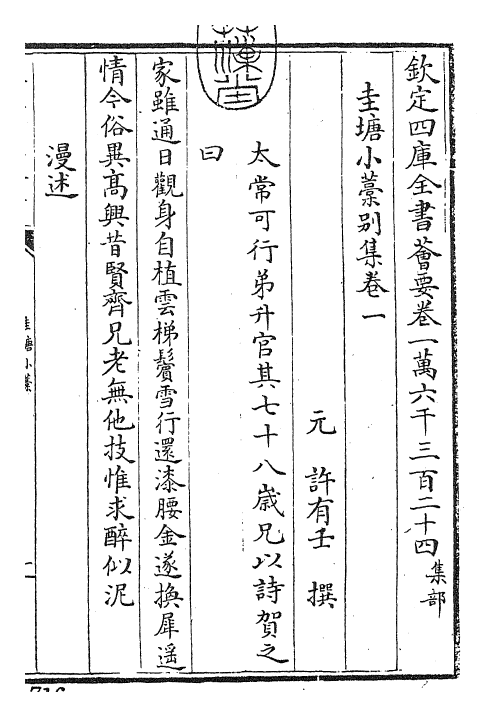 欽定四庫全書薈要卷一萬六千三百二十四集部
圭塘小藁别集卷一
元 許有壬 撰
太常可行弟升官其七十八歲兄以詩賀之
曰
家雖通日觀身自植雲梯鬢雪行還漆腰金遂換犀遥
情今俗異髙興昔賢齊兄老無他技惟求醉似泥
漫述
圭塘小藁